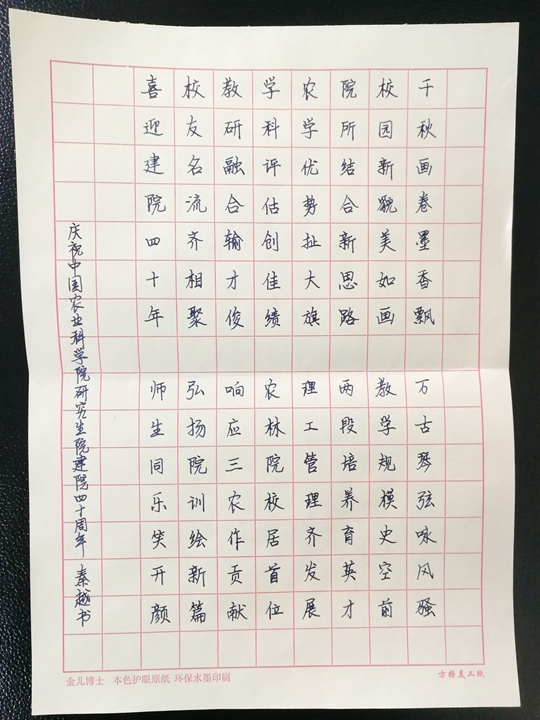 千秋画卷墨香飘
万古琴弦咏风骚
校园新貌美如画
教学规模史空前
院所结合新思路
两段培养育英才
农学优势扯大旗
理工管理齐发展
学科评估创佳绩
农林院校居首位
教研融合输才俊
响应三农作贡献
校友名流齐相聚
弘扬院训绘新篇
喜迎建院四十年
师生同乐笑开颜
庆祝中国农业科学院研究生院建院四十周年 秦越书
金儿博士 本色护眼原纸 环保水墨印刷
方格美工纸